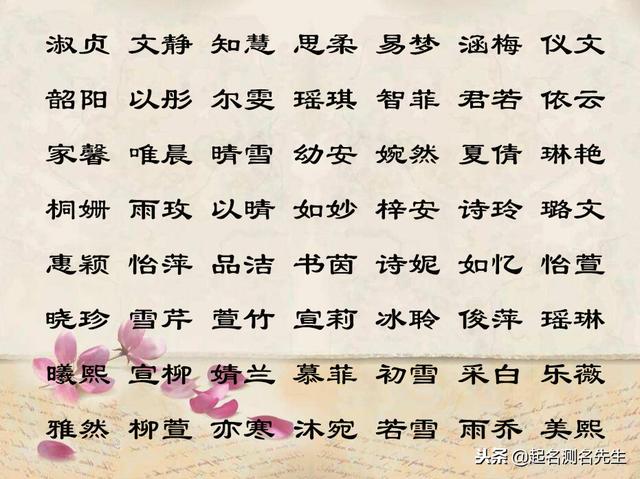 淑贞 文静 知慧 思柔 易梦 涵梅 仪文
韶阳 以彤 尔雯 瑶琪 智菲 君若 依云
家馨 唯晨 晴雪 幼安 婉然 夏倩 琳艳
桐姗 雨玫 以晴 如妙 梓安 诗玲 璐文
惠颖 怡萍 品洁 书茵 诗妮 如忆 怡萱
晓珍 雪芹 萱竹 宣莉 冰聆 俊萍 瑶琳
曦熙 宣柳 婧兰 慕菲 初雪 采白 乐薇
雅然 柳萱 亦寒 沐宛 若雪 雨乔 美熙
头条 @起名测名先生